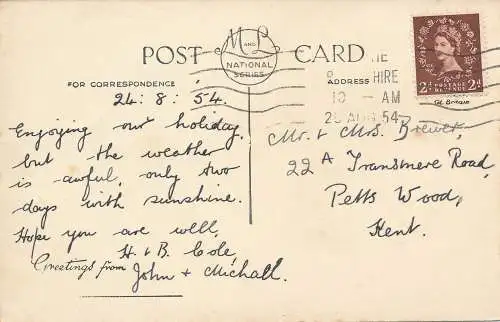 POST CARD
M AND L
NATIONAL
SERIES
FOR CORRESPONDENCE
24:8:54.
Enjoying our holiday,
but the weather
is awful, only two
days with sunshine.
Hope you are well,
H & B Cole
Greetings from John & Michall.
ADDRESS
HIRE
AM
AUG 54
2d POSTAGE REVENUE 2d
Gt. Britain
Mr. & Mrs. Brewer,
22A Transmere Road,
Petts Wood,
Kent.